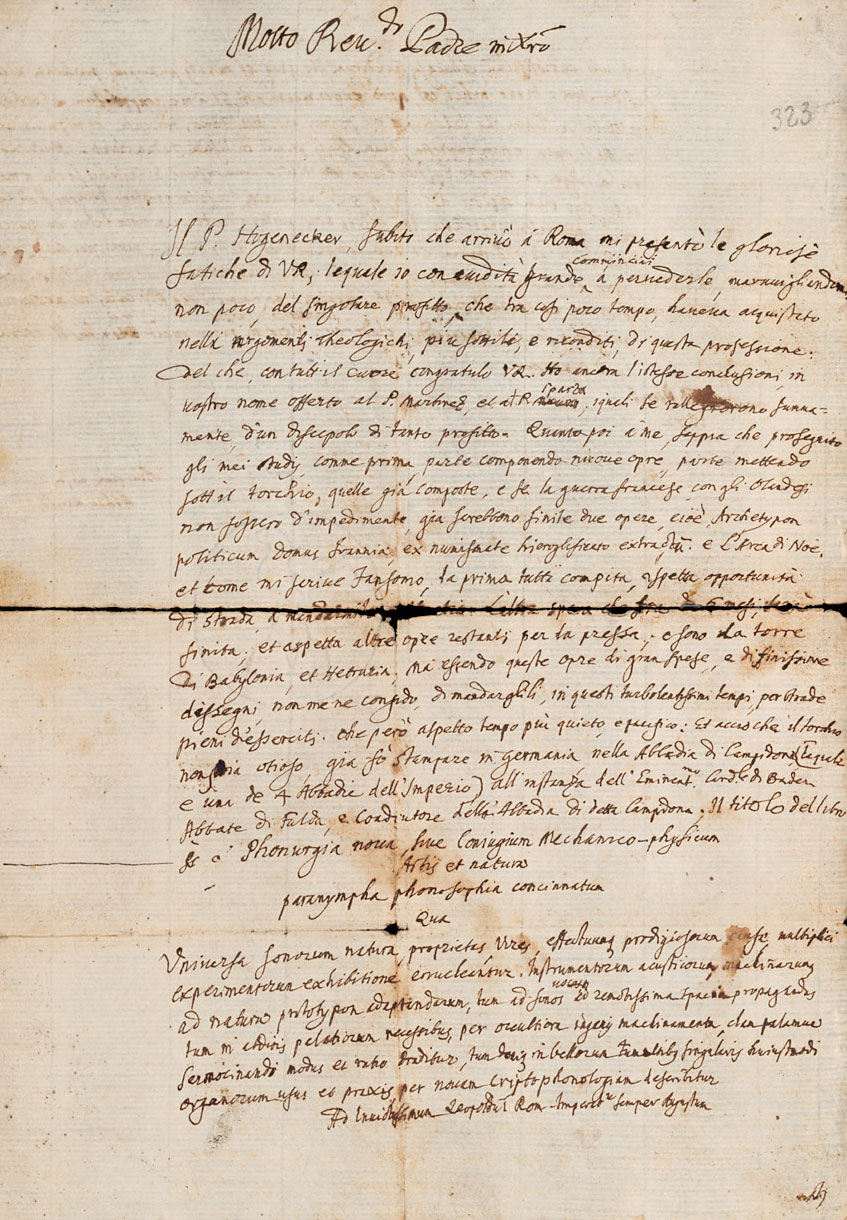 Molto Reu.do Padre in Xro
323
Il P. Higenecker, subito che arriuò á Roma mi presentò le gloriose
fatiche di VR, lequale io con auidità grande comminciai á peruederle, marauigliandomi
non poco, del singolare profitto, che tra cosi poco tempo, haueua acquistato
nelli argomenti Theologichi, piu sottili, e riconditi, di questa professione.
Del che, con tutt il cuore congratulo VR. Ho ancora l'istesse conclusioni, in
uostro nome offerto al P. Martinez, et al R Sparza, iquali se rallegrorono summa-
mente, d'un discepolo di tanto profitto. Quanto poi à me, seppia che proseguito
gli mei studij comme prima, parte componendo nuoue opre, parte mettendo
sott il torchio, quelle già composte, e se la guerra francese, con gli Olandesi
non fossero d'impedimente, già serebbono finite due opere, cioè, Archetypon
politicum Domus Iannia, ex numismate hieroglificato extractu. e L'Arca di Noe,
et come mi scriue Jansonio, la prima tutta compita, aspetta opportunità
di strada, a mandarmila L'altra spera che fra 6 mesi, sarà
finita, et aspetta altre opre restanti per la pressa, e sono la torre
di Babylonia, et Hetruria, Ma essendo queste opre di gran spese, e di finissime
dissegni, non me ne confido, di mandarglili, in questi turbolentissimi tempi, per strade
pieni d'esserciti. che però aspetto tempo più quieto, e pacifico: Et acciochè il torchio
non stia otioso, già fò stampare in germania nella Abbadia di Campidona (laquale
e una de 4 Abbadie dell'Imperio) all'instanza dell'Eminent.mo Card.le di Baden
Abbate di Fulda, e Coadiutore della Abbadia di detta Campdona. Il titolo del libro
è Phonurgia noua, siue Coniugium Mechanico-physicum
Artis et natura
paranympha phonosophia concinnatum
Qua
Vniuersa sonorum natura, proprietas vires, effectuumq prodigiosorum causę multiplici
experimentorum exhibitione enucleantur. Instrumentorum acusticorum, machinarumq
ad natura prototypon adaptandarum, tum ad sonos ad remotissima spatia propagandos
tum in abditis palatiorum recessibus, per occultiora ingenij machinamenta, clan palamue
sermocinandi modus et ratio traditur, tum deniq in bellorum tumultibus singularis huiusmodi
organorum usus et praxis per nouam Criptophonologiam describitur
Ad Inuictissimum Leopoldum Rom. Imperat. semper Augustum